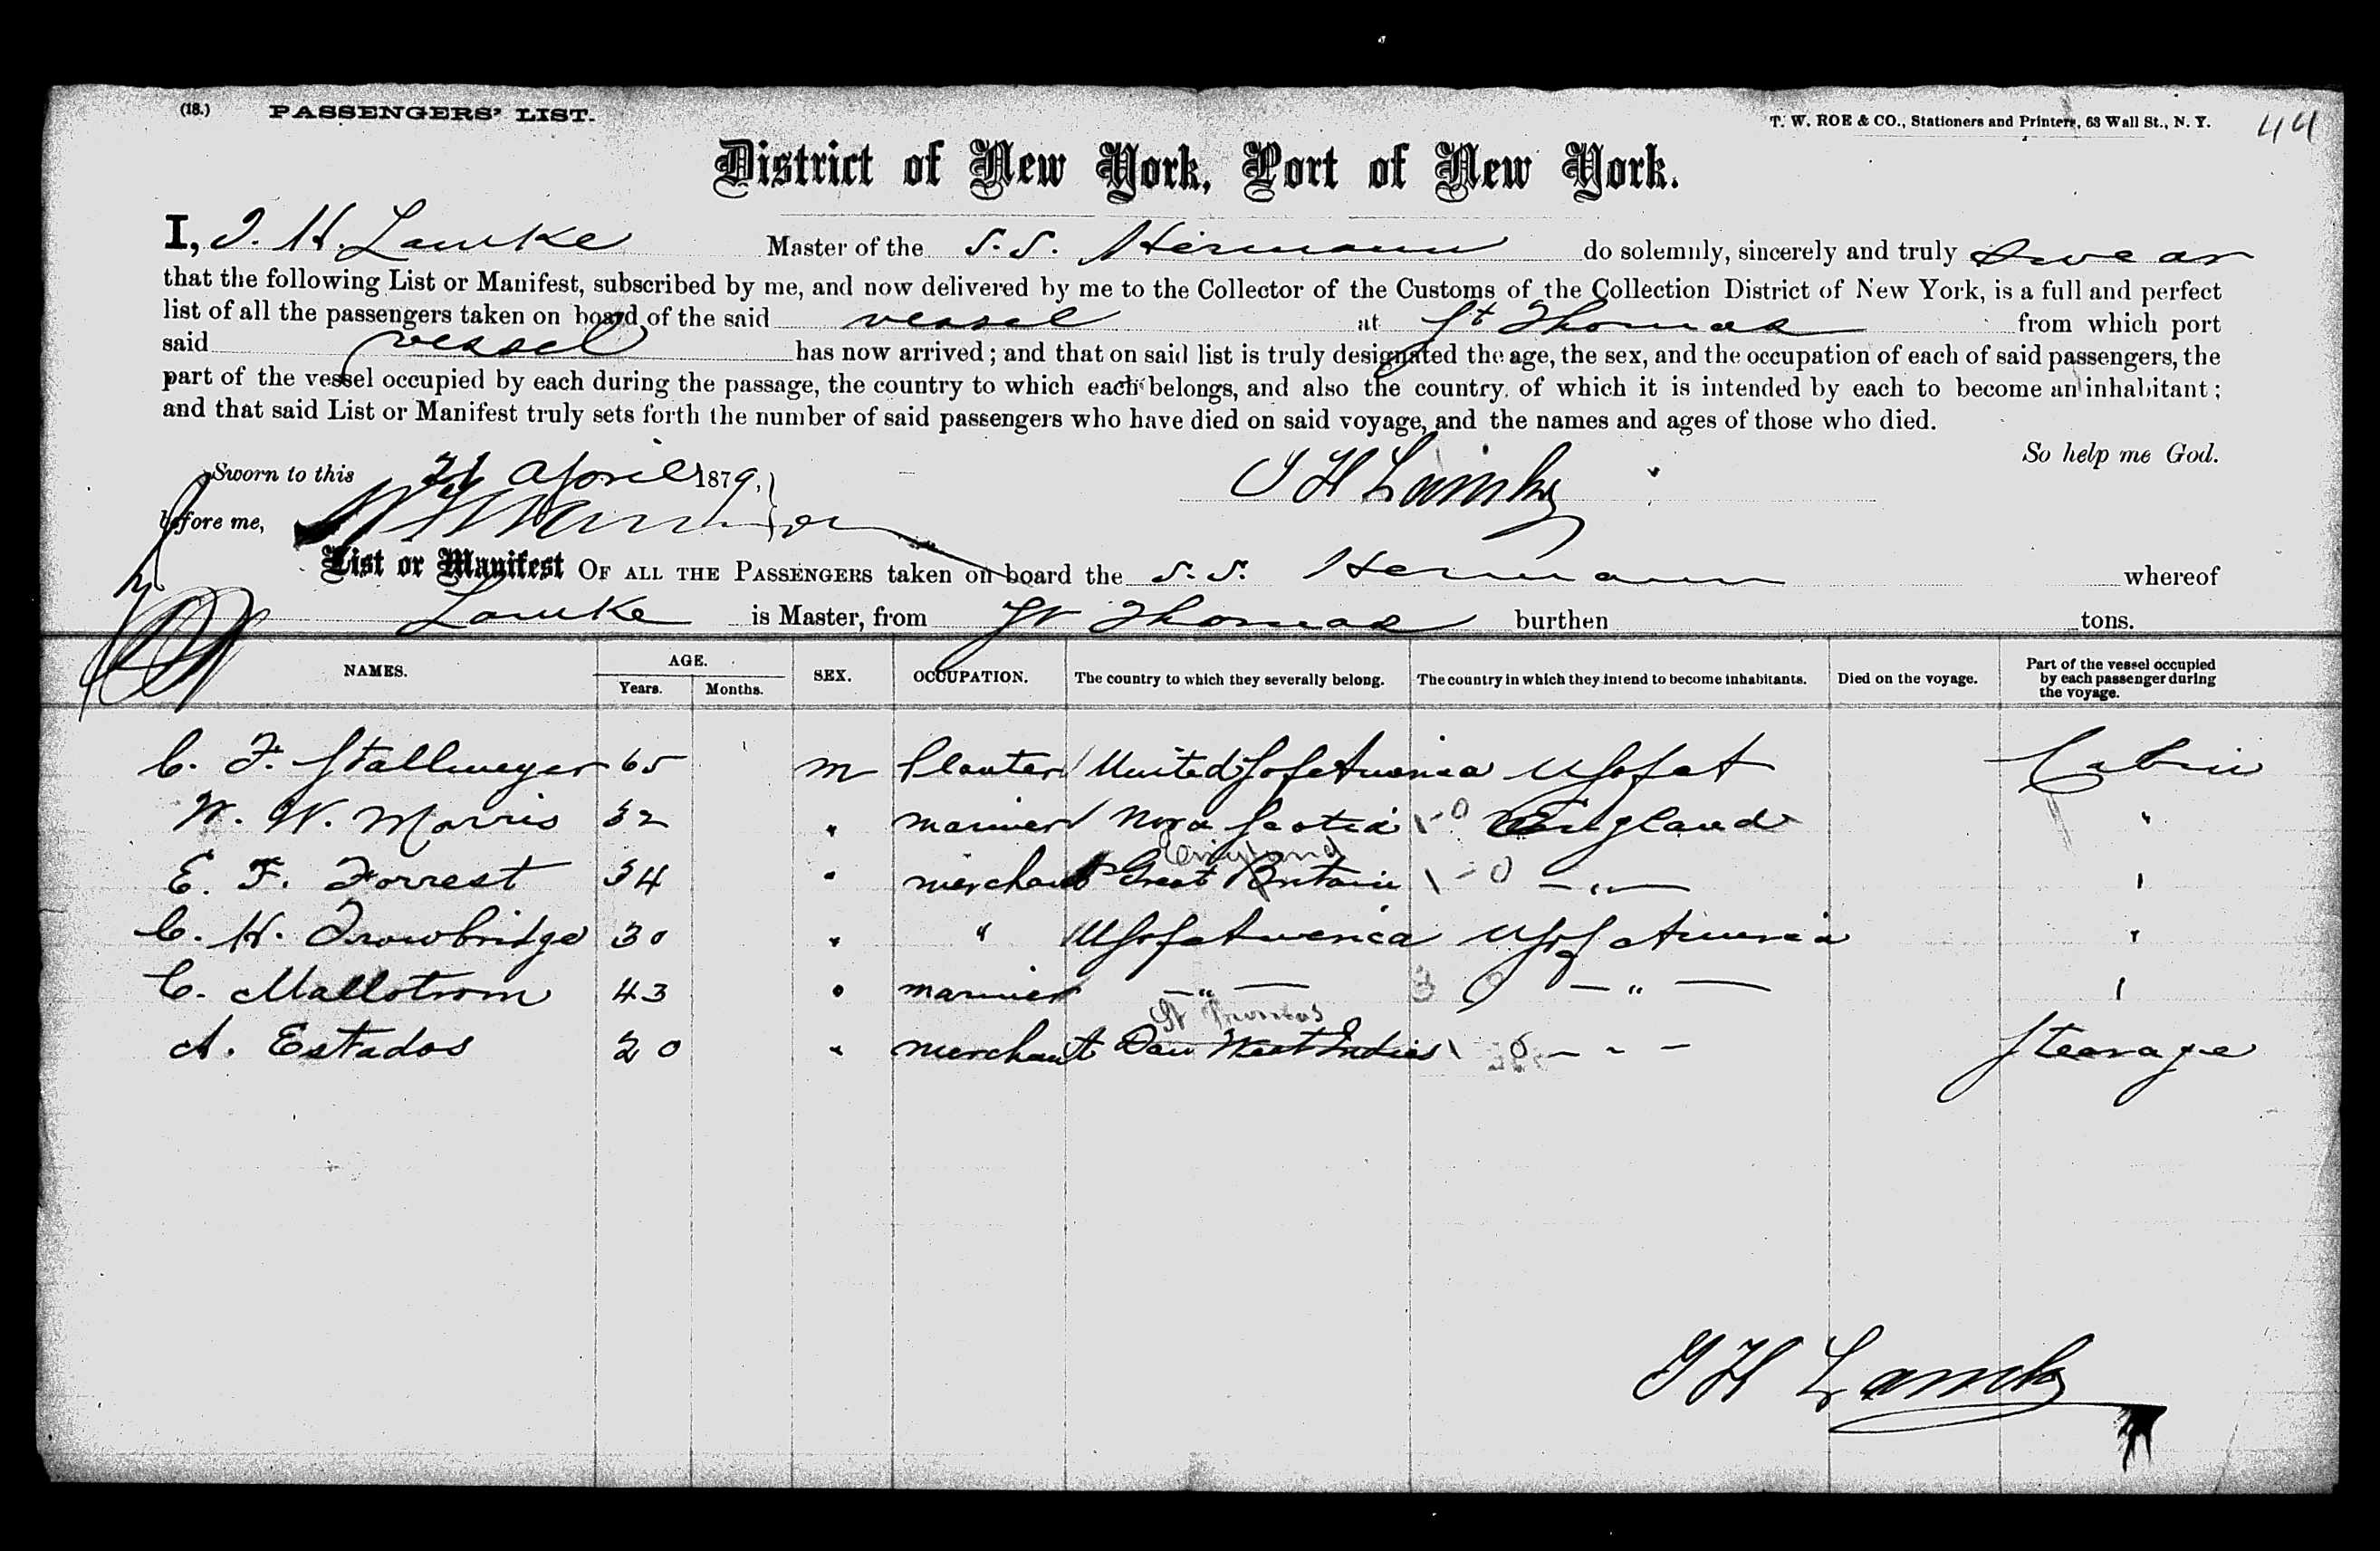 (18.) PASSENGERS' LIST. T. W. ROE & CO., Stationers and Printers, 63 Wall St., N. Y. 44
District of New York, Port of New York.
I, J. H. Lamke Master of the S.S. Hermann do solemnly, sincerely and truly swear
that the following List or Manifest, subscribed by me, and now delivered by me to the Collector of the Customs of the Collection District of New York, is a full and perfect
list of all the passengers taken on board of the said vessel at St Thomas from which port
said vessel has now arrived; and that on said list is truly designated the age, the sex, and the occupation of each of said passengers, the
part of the vessel occupied by each during the passage, the country to which each belongs, and also the country of which it is intended by each to become an inhabitant;
and that said List or Manifest truly sets forth the number of said passengers who have died on said voyage, and the names and ages of those who died.
So help me God.
Sworn to this 21 April 1879, J H Lamke
before me,
List or Manifest OF ALL THE PASSENGERS taken on board the S.S. Hermann whereof
Lamke is Master, from St Thomas burthen tons.
NAMES. AGE. Years. Months. SEX. OCCUPATION. The country to which they severally belong. The country in which they intend to become inhabitants. Died on the voyage. Part of the vessel occupied by each passenger during the voyage.
C. F. Stallmeyer 65 m Planter United S of America U S of A Cabin
W. W. Morris 32 " mariner Nova Scotia 1-0 England "
England
E. F. Forrest 34 " merchant Great Britain 1-0 — " — "
C. H. Trowbridge 30 " " U S of America U S of America "
C. Mallstrom 43 " mariner — " — 3 0 — " — "
St Thomas
A. Estados 20 " merchant Dan West Indies 1 0 — " — Steerage
J H Lamke